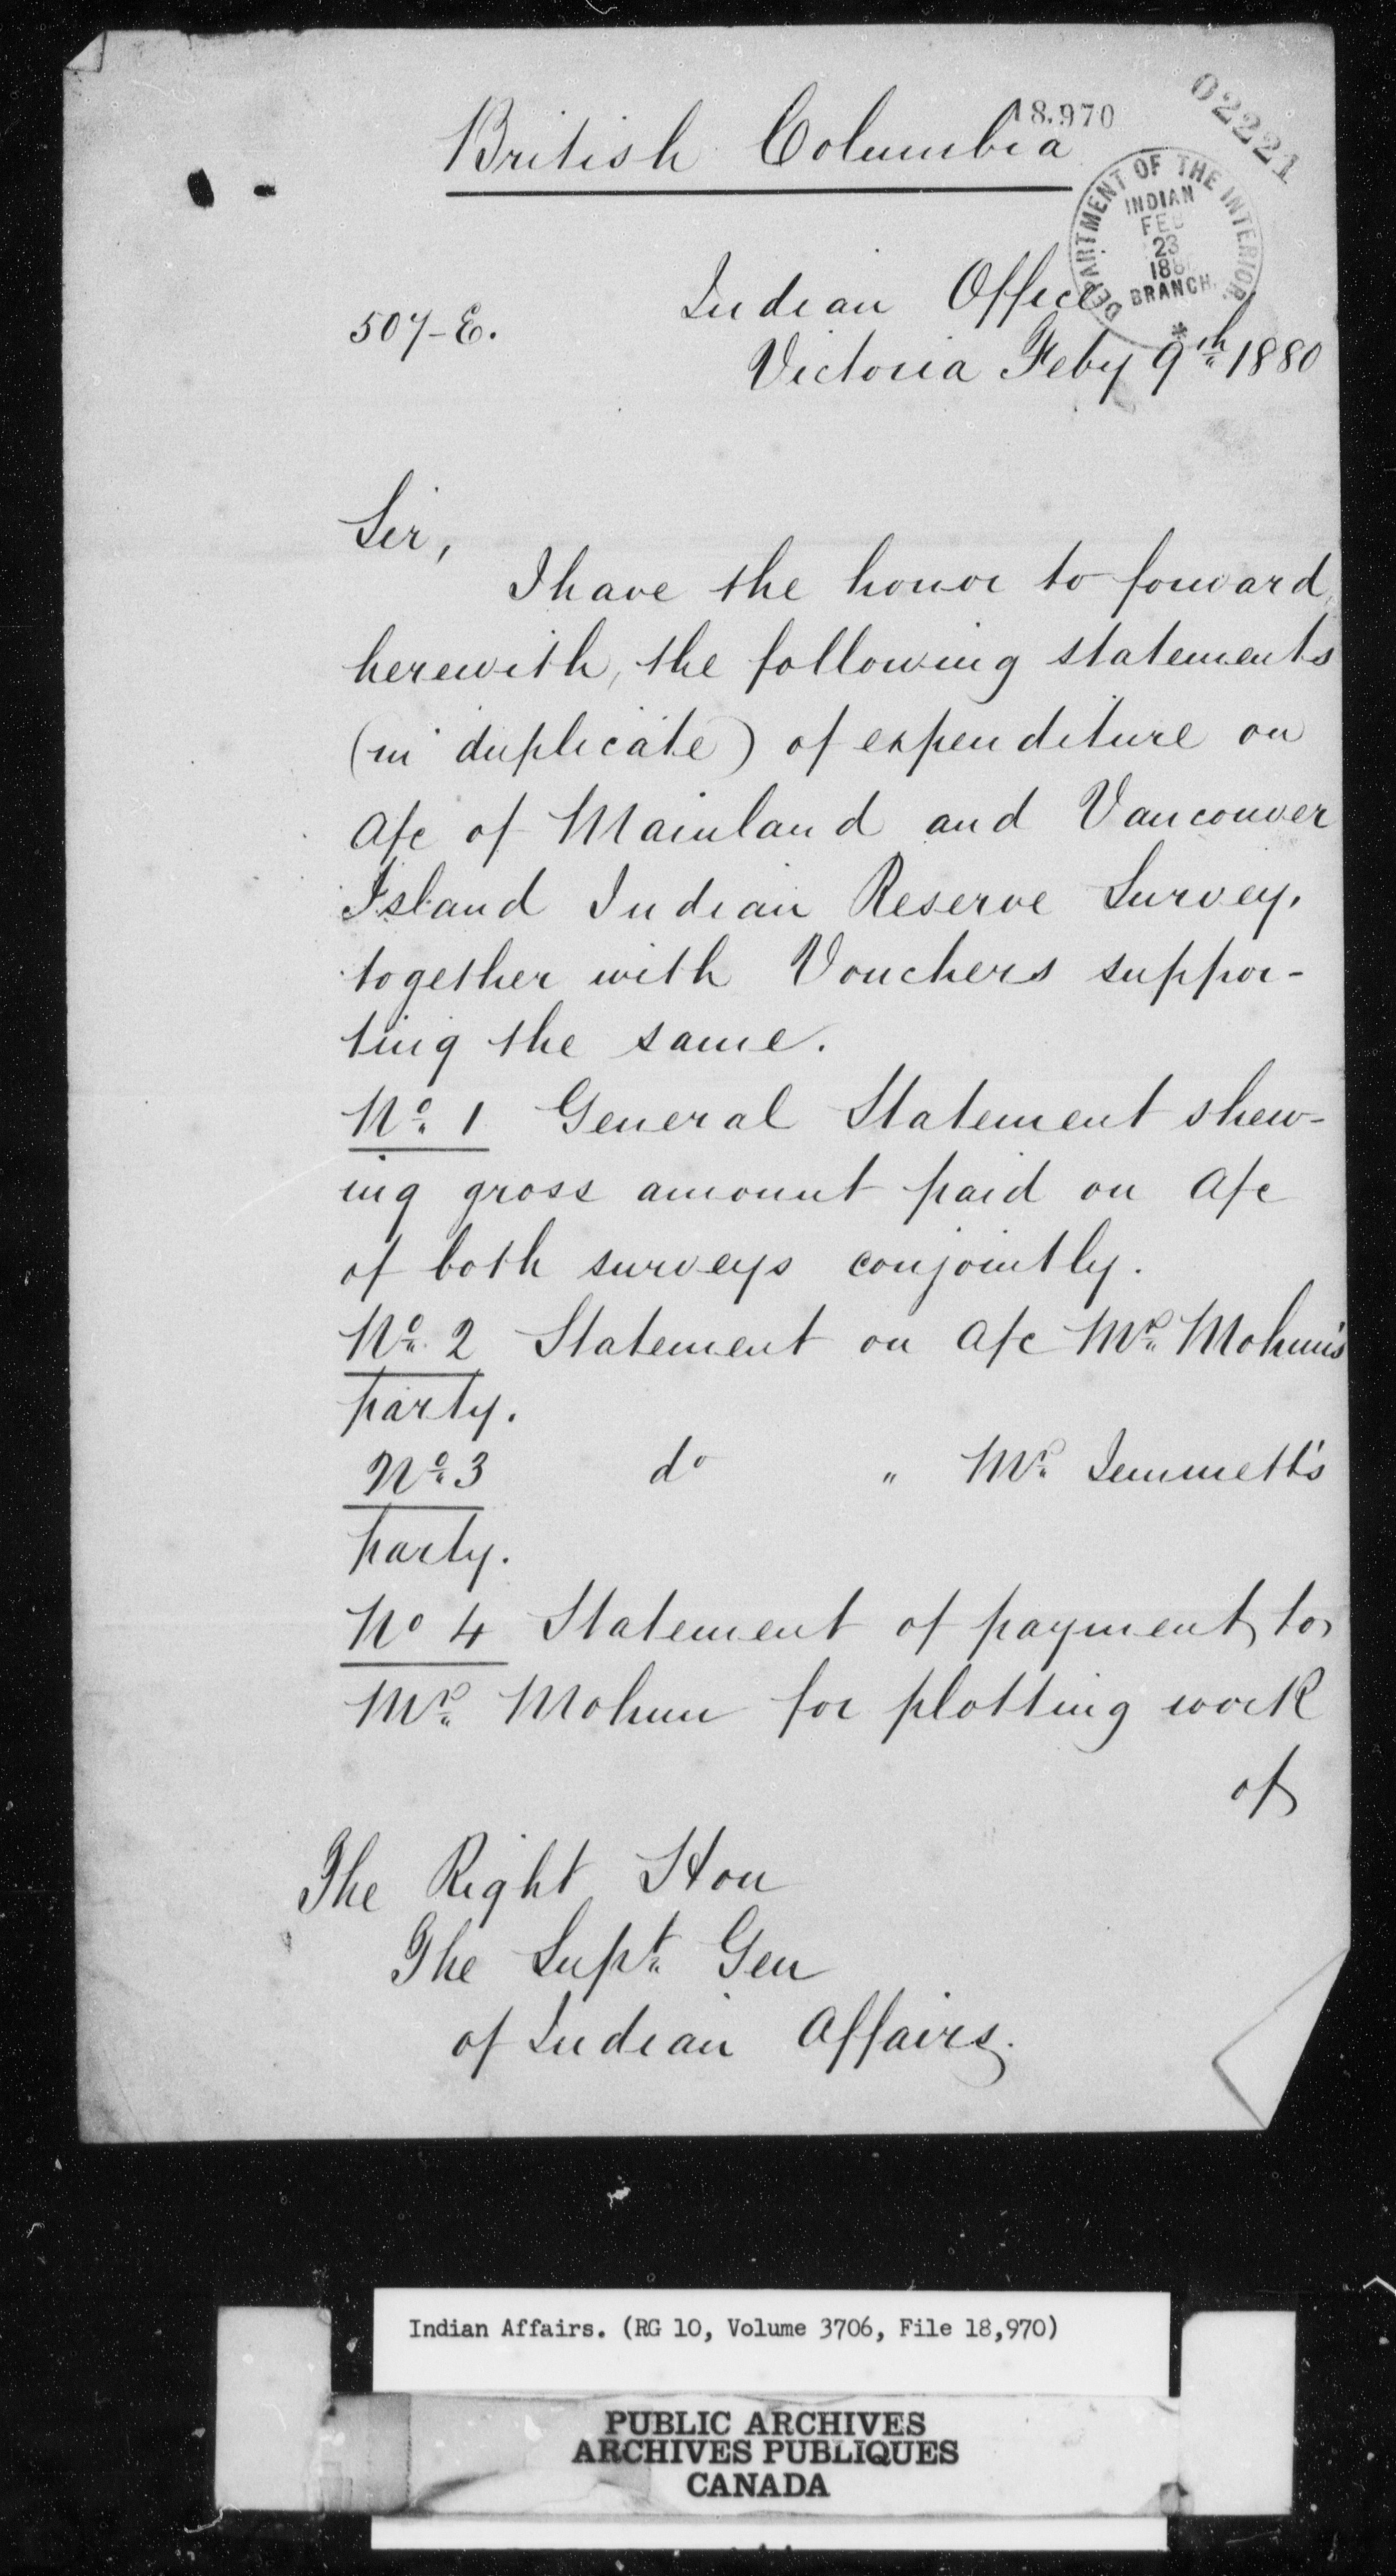 18.970
02221
British Columbia
DEPARTMENT OF THE INTERIOR.
INDIAN
FEB
23
188
BRANCH.
Indian Office
507-E.
Victoria Feby 9th 1880
Sir,
I have the honor to forward,
herewith, the following statements
(in duplicate) of expenditure on
a/c of Mainland and Vancouver
Island Indian Reserve Survey,
together with Vouchers suppor-
ting the same.
No. 1 General Statement shew-
ing gross amount paid on a/c
of both surveys conjointly.
No. 2 Statement on a/c Mr. Mohun's
party.
No. 3 do " Mr. Jemmett's
party.
No 4 Statement of payment to
Mr. Mohun for plotting work
of
The Right Hon
The Supt. Gen
of Indian Affairs.
Indian Affairs. (RG 10, Volume 3706, File 18,970)
PUBLIC ARCHIVES
ARCHIVES PUBLIQUES
CANADA